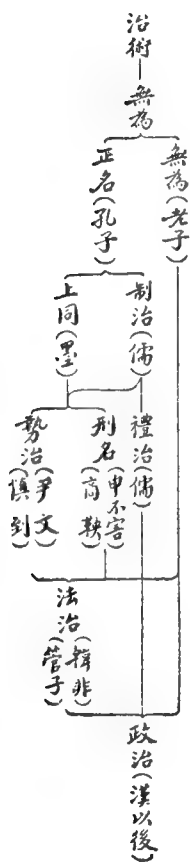 治術
無為
無為(老子)
正名(孔子)
制治(儒)
上同(墨)
禮治(儒)
刑名(申不害 商鞅)
勢治(尹文 慎到)
法治(韓非 管子)
政治(漢以後)